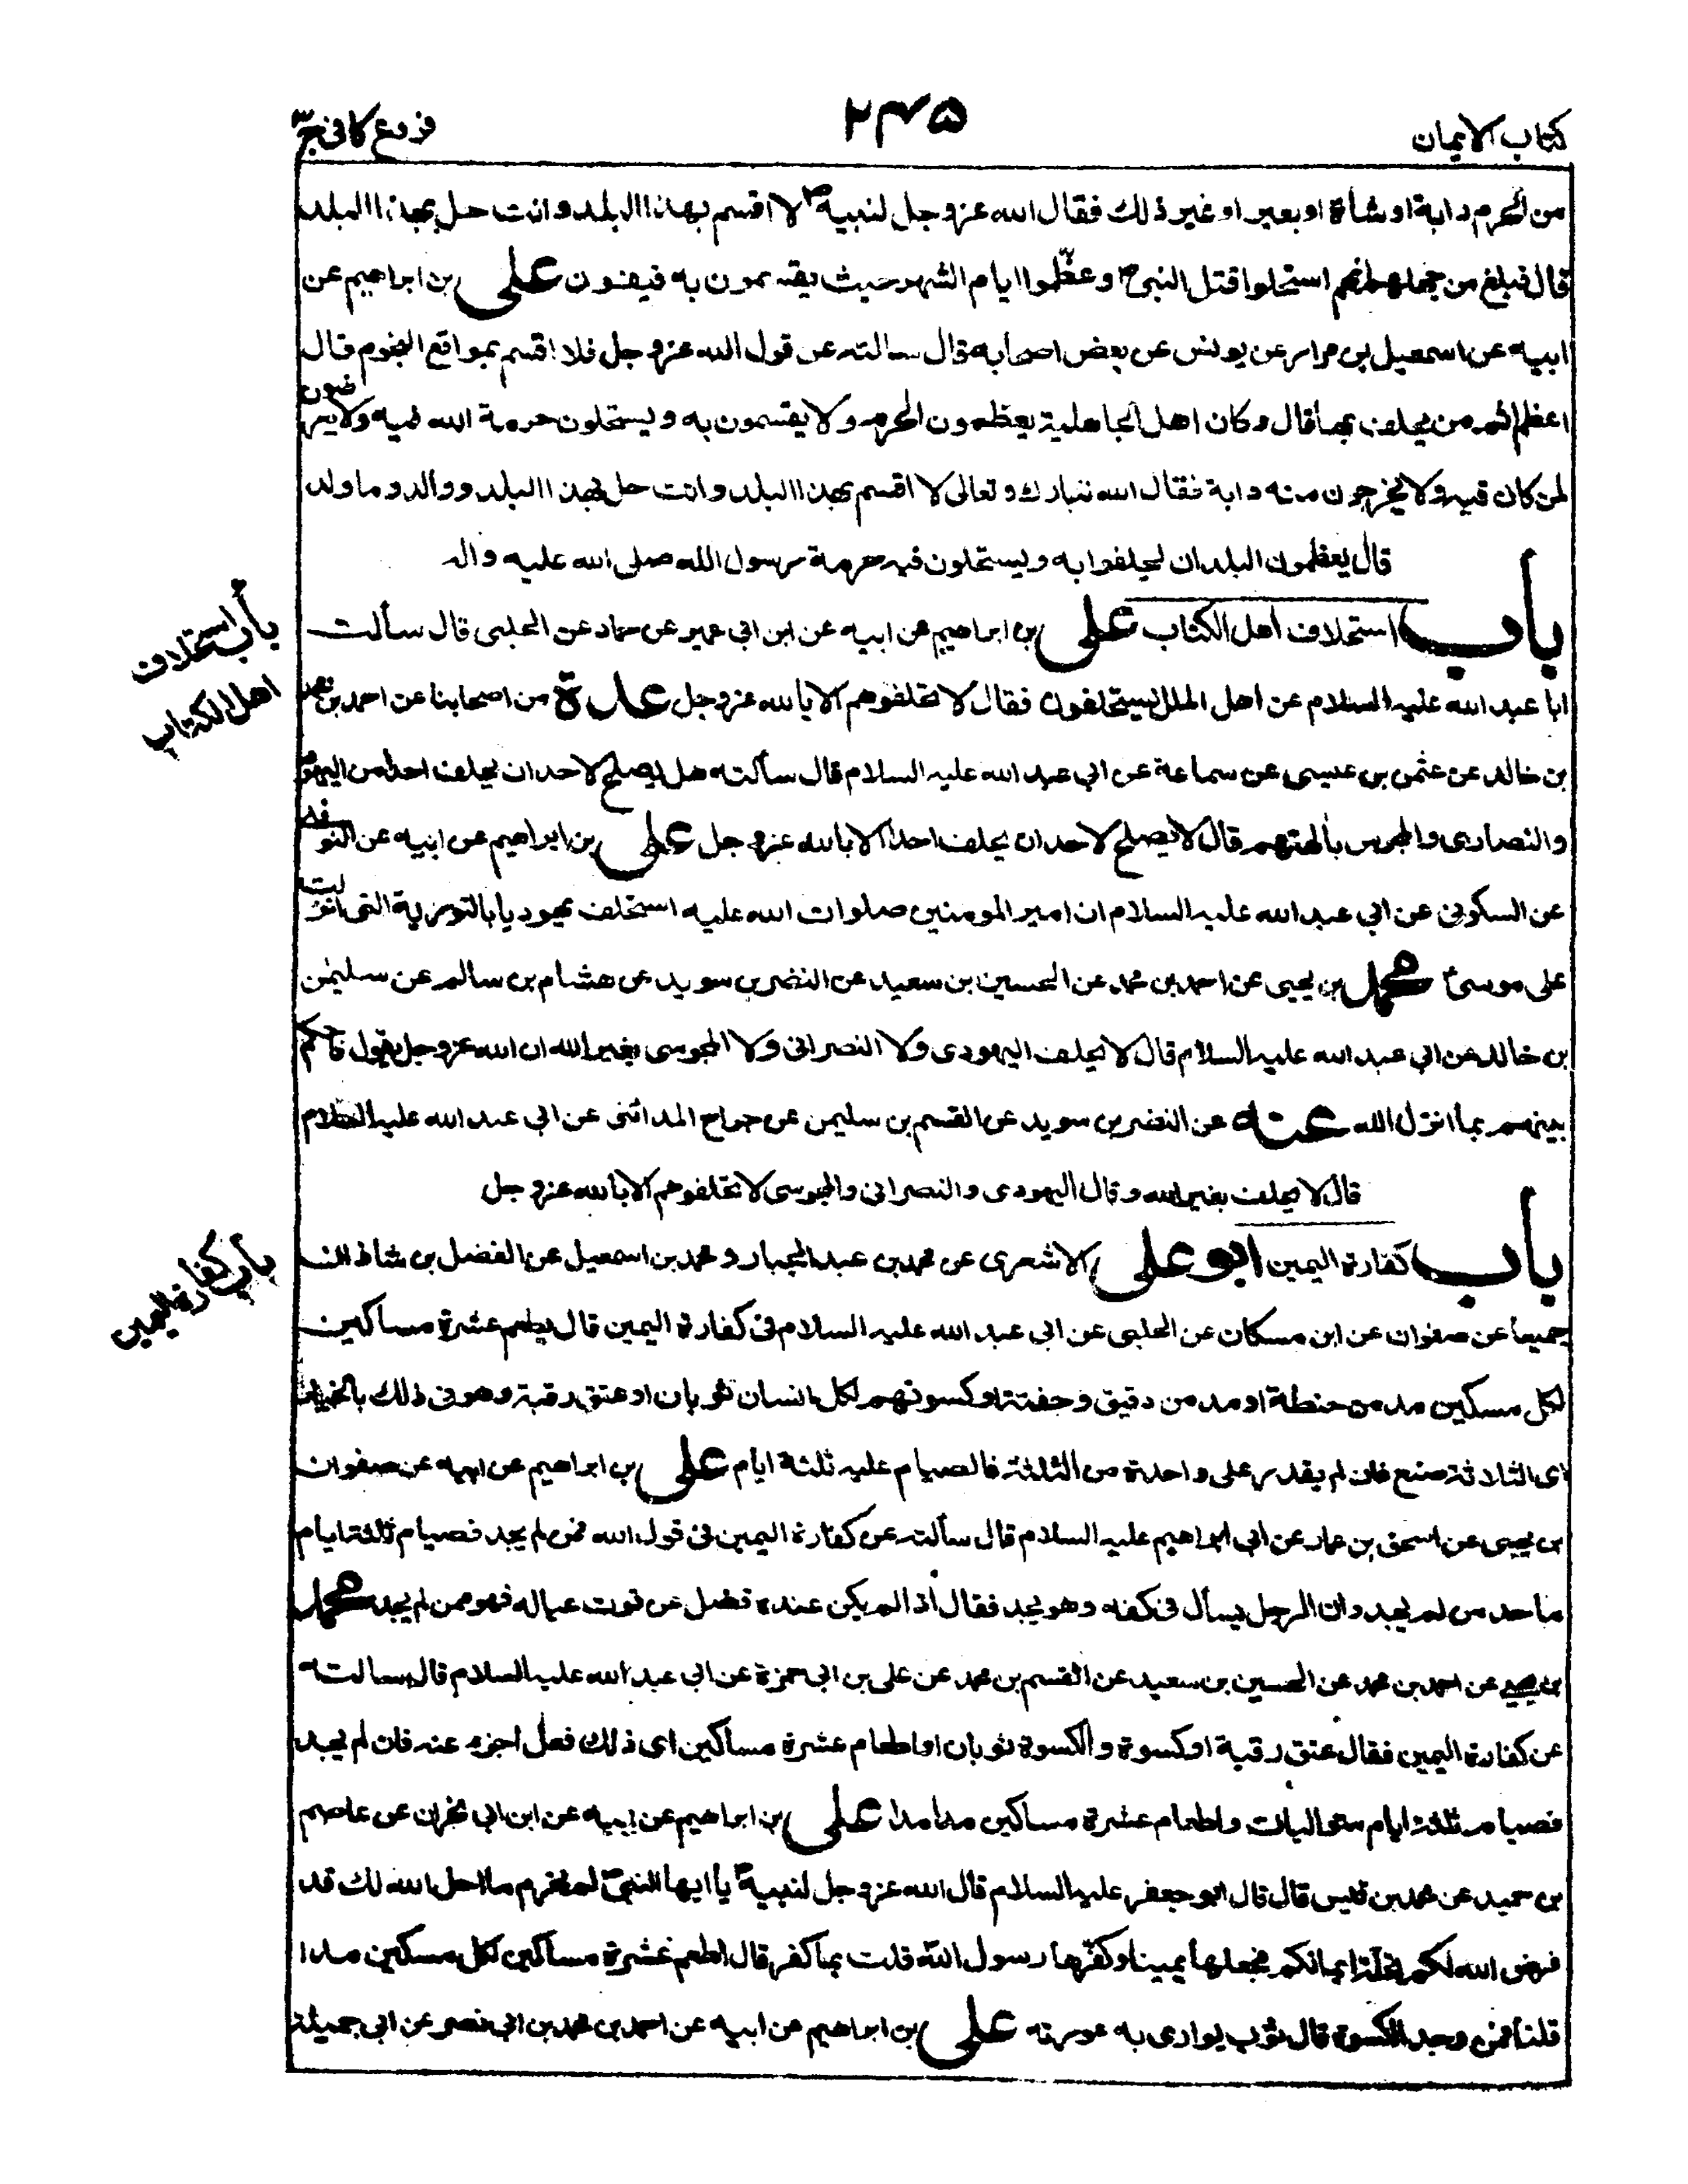 كتاب الايمان
٢٣٥
فروع كافى ج٣
من الحرم دابة او شاة او بعير او غير ذلك فقال الله عز وجل لنبيه ص لا اقسم بهذا البلد وانت حل بهذا البلد
قال فبلغ من جهلهم انهم استحلوا قتل النبى ص وعظموا ايام الشهر حيث يقسمون به فيفون على بن ابراهيم عن
ابيه عن اسمعيل بن مرار عن يونس عن بعض اصحابه قال سالته عن قول الله عز وجل فلا اقسم بمواقع النجوم قال
اعظم اثم من يحلف بها قال وكان اهل الجاهلية يعظمون الحرم ولا يقسمون به ويستحلون حرمة الله فيه ولا يعرضون
لمن كان فيه ولا يخرجون منه دابة فقال الله تبارك وتعالى لا اقسم بهذا البلد وانت حل بهذا البلد ووالد وما ولد
قال يعظمون البلد ان يحلفوا به ويستحلون فيه حرمة رسول الله صلى الله عليه واله
باب استحلاف اهل الكتاب على بن ابراهيم عن ابيه عن ابن ابى عمير عن حماد عن الحلبى قال سألت
باب استحلاف
اهل الكتاب
ابا عبد الله عليه السلام عن اهل الملل يستحلفون فقال لا تحلفوهم الا بالله عز وجل عدة من اصحابنا عن احمد بن محمد
بن خالد عن عثمن بن عيسى عن سماعة عن ابى عبد الله عليه السلام قال سألته هل يصلح لاحد ان يحلف احدا من اليهود
والنصارى والمجوس بألهتهم قال لا يصلح لاحد ان يحلف احدا الا بالله عز وجل على بن ابراهيم عن ابيه عن النوفلى
عن السكونى عن ابى عبد الله عليه السلام ان امير المومنين صلوات الله عليه استحلف يهوديا بالتورية التى انزلت
على موسى ع محمد بن يحيى عن احمد بن محمد عن الحسين بن سعيد عن النضر بن سويد عن هشام بن سالم عن سليمن
بن خالد عن ابى عبد الله عليه السلام قال لا يحلف اليهودى ولا النصرانى ولا المجوسى بغير الله ان الله عز وجل يقول فاحكم
بينهم بما انزل الله عنه عن النضر بن سويد عن القسم بن سليمن عن جراح المدائنى عن ابى عبد الله عليه السلام
قال لا يحلف بغير الله وقال اليهودى والنصرانى والمجوسى لا تحلفوهم الا بالله عز وجل
باب كفارة اليمين ابو على الاشعرى عن محمد بن عبد الجبار ومحمد بن اسمعيل عن الفضل بن شاذان
باب كفارة اليمين
جميعا عن صفوان عن ابن مسكان عن الحلبى عن ابى عبد الله عليه السلام فى كفارة اليمين قال يطعم عشرة مساكين
لكل مسكين مد من حنطة او مد من دقيق وحفنة او كسوتهم لكل انسان ثوبان او عتق رقبة وهو فى ذلك بالخيار
اى الثلاثة صنع فان لم يقدر على واحدة من الثلثة فالصيام عليه ثلثة ايام على بن ابراهيم عن ابيه عن صفوان
بن يحيى عن اسحق بن عمار عن ابى ابراهيم عليه السلام قال سألته عن كفارة اليمين فى قول الله فمن لم يجد فصيام ثلثة ايام
ما حد من لم يجد وان الرجل يسأل فى كفه وهو يجد فقال اذا لم يكن عنده فضل عن قوت عياله فهو ممن لم يجد محمد
بن يحيى عن احمد بن محمد عن الحسين بن سعيد عن القسم بن محمد عن على بن ابى حمزة عن ابى عبد الله عليه السلام قال سالته
عن كفارة اليمين فقال عتق رقبة او كسوة والكسوة ثوبان او اطعام عشرة مساكين اى ذلك فعل اجزء عنه فان لم يجد
فصيام ثلثة ايام متواليات واطعام عشرة مساكين مدا مدا على بن ابراهيم عن ابيه عن ابن ابى نجران عن عاصم
بن حميد عن محمد بن قيس قال قال ابو جعفر عليه السلام قال الله عز وجل لنبيه ص يا ايها النبى لم تحرم ما احل الله لك قد
فرض الله لكم تحلة ايمانكم فجعلها يمينا وكفرها رسول الله قلت بما كفر قال اطعم عشرة مساكين لكل مسكين مدا
قلنا فمن وجد الكسوة قال ثوب يوارى به عورته على بن ابراهيم عن ابيه عن احمد بن محمد بن ابى نصر عن ابى جميلة